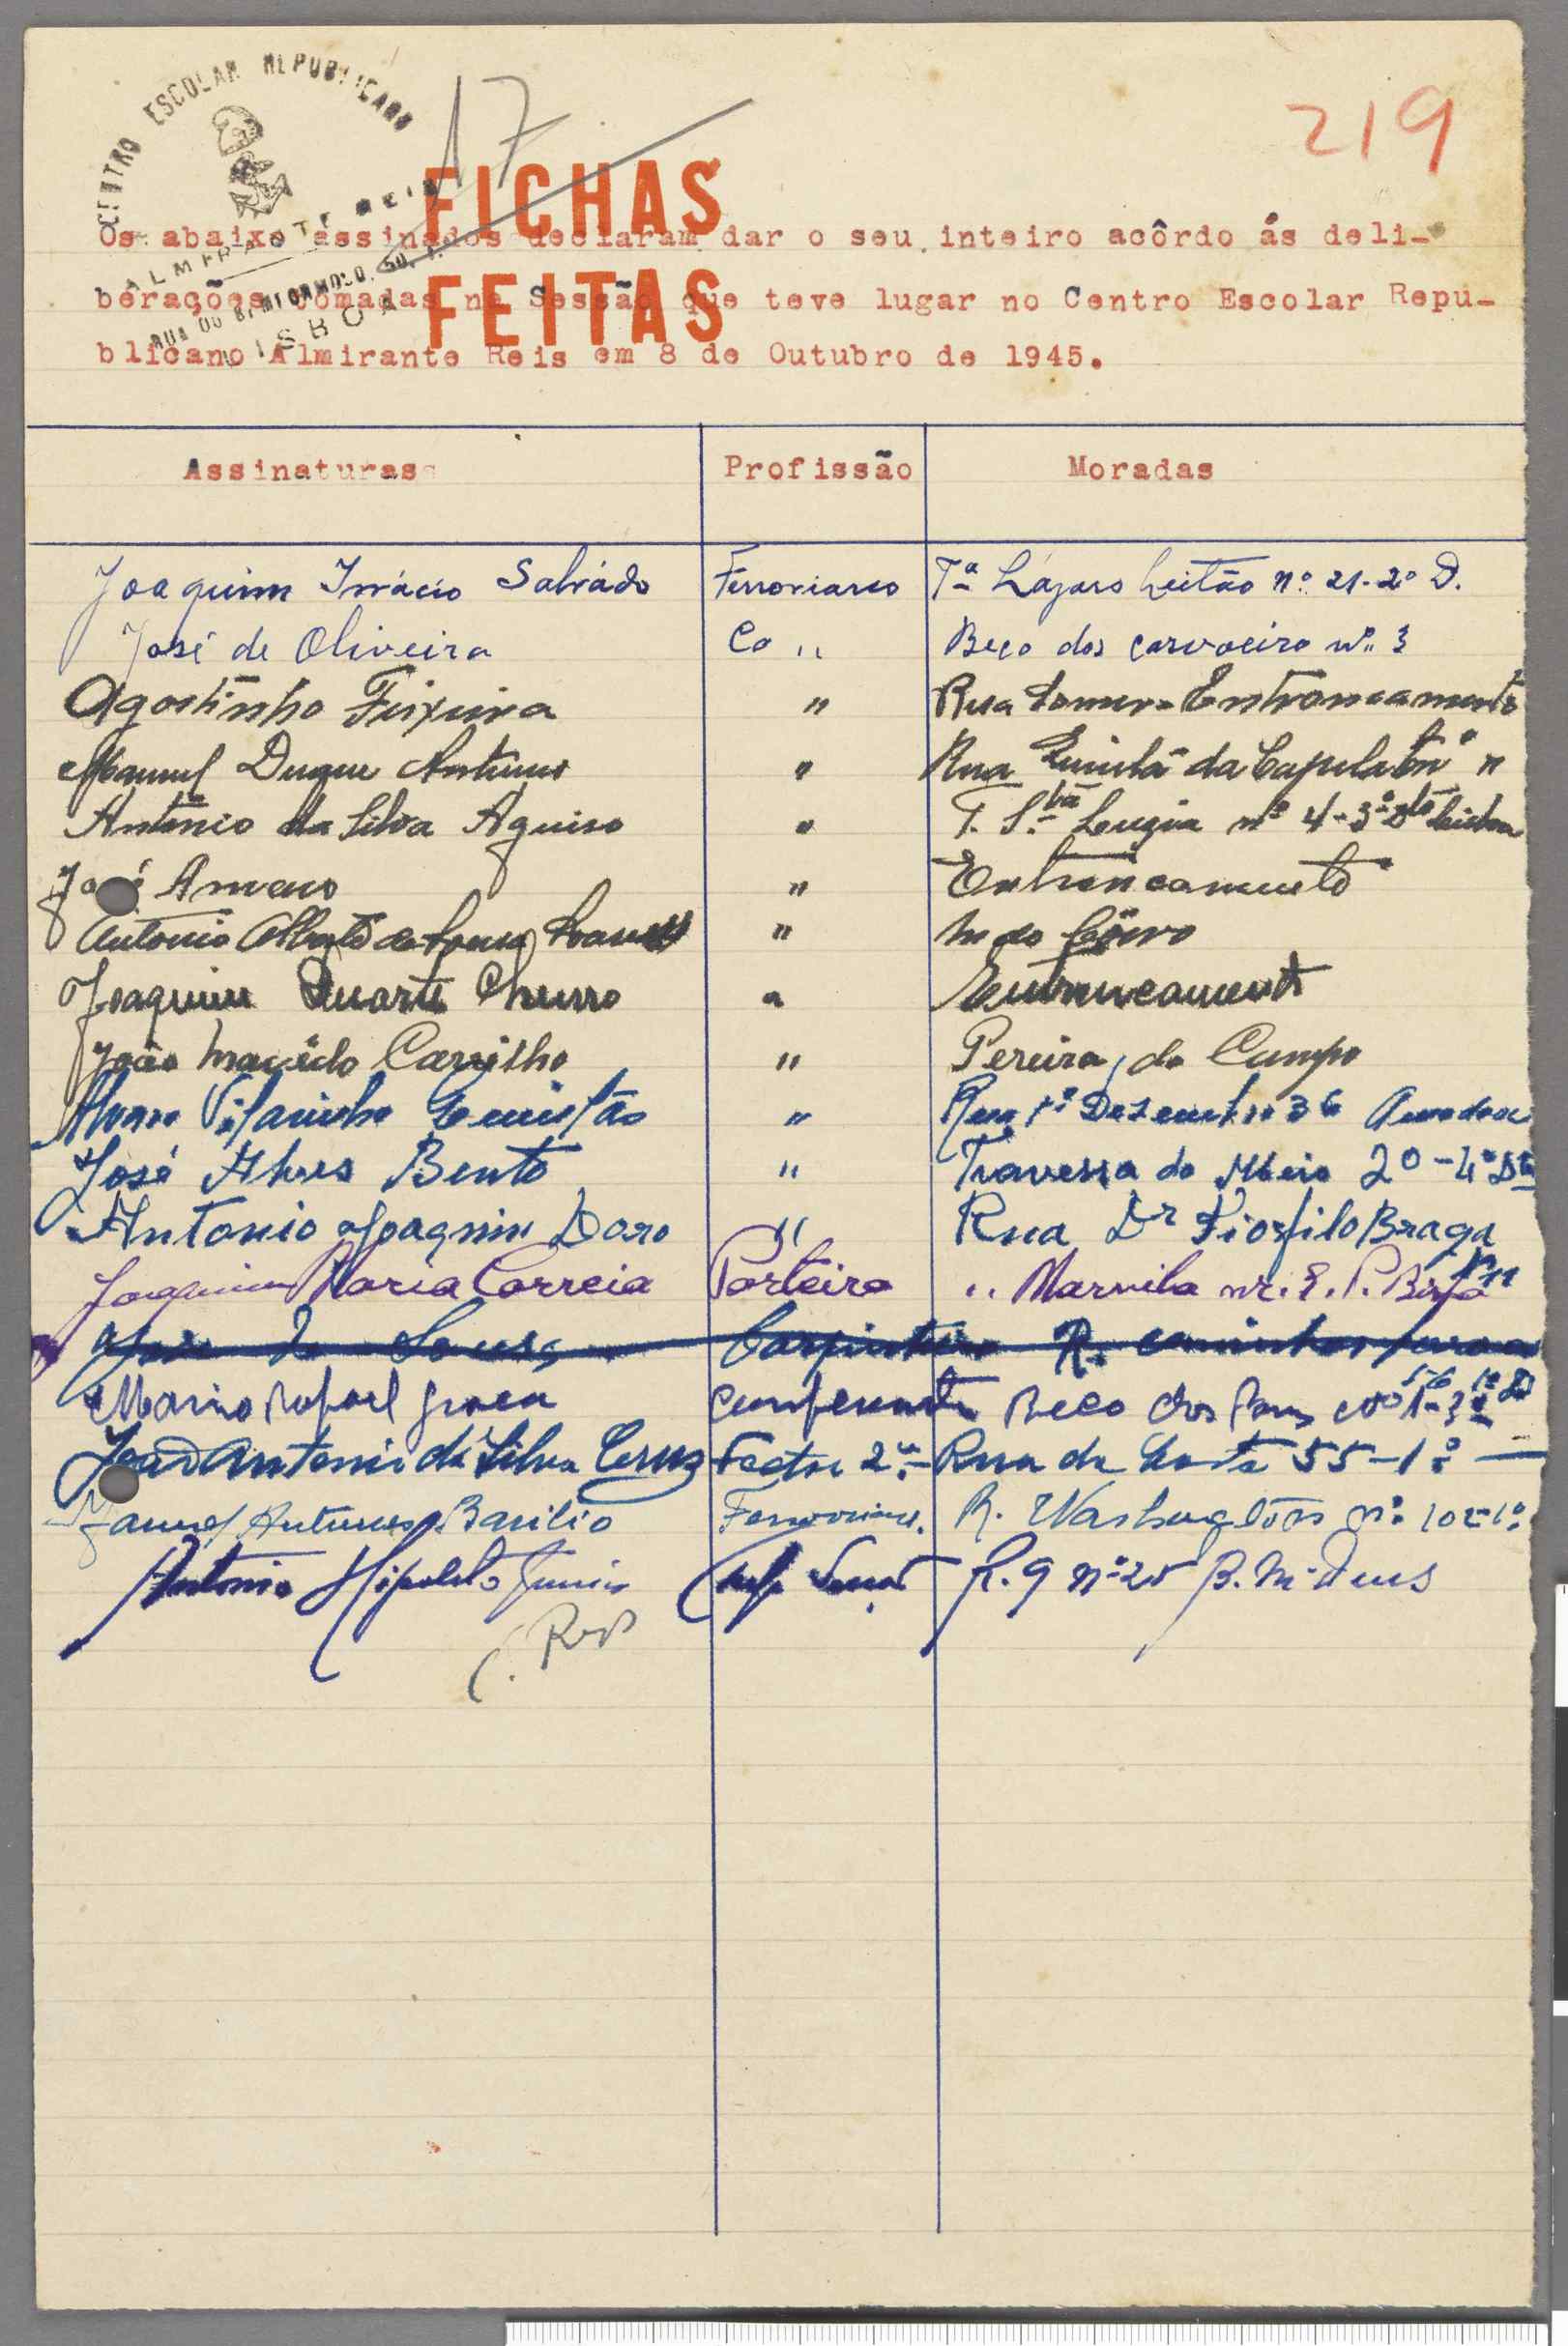 CENTRO ESCOLAR REPUBLICANO
ALMIRANTE REIS
LISBOA
17
219
FICHAS
FEITAS
Os abaixo assinados declaram dar o seu inteiro acôrdo ás deli-
berações tomadas na Sessão que teve lugar no Centro Escolar Repu-
blicano Almirante Reis em 8 de Outubro de 1945.
Assinaturas Profissão Moradas
Joaquim Inácio Salvádo Ferroviareo Tª Lázaro Leitão nº 21-2º D.
José de Oliveira Co " Beco dos carvoeiro nº 3
Agostinho Teixeira " Rua Entroncamento
Manuel Duque Antunes " Rua da Capela "
António da Silva " T. S.ta Luzia nº 4-3º Dto Lisboa
José " Entroncamento
Antonio Alberto "
Joaquim Duarte Churro " Entroncamento
João Carrilho " Pereira, do Campo
Vilarinho " Rua 1º Dezembro 36 Amadora
José Alves Bento " Travessa do Meio 20-4º Dto
Antonio Joaquim " Rua Dr Tiofilo Braga
Joaquim Maria Correia Porteiro " Marvila
José de Sousa Carpinteiro R.
Mario Rafael Graca Conferente Beco dos
João Antonio da Silva Cruz Factor 2ª Rua da 55-1º
Manuel Antunes Basilio R. Washington nº 102-1º
Antonio Hipolito Junior R. 9 nº 25 B. M. Deus
C. Reis